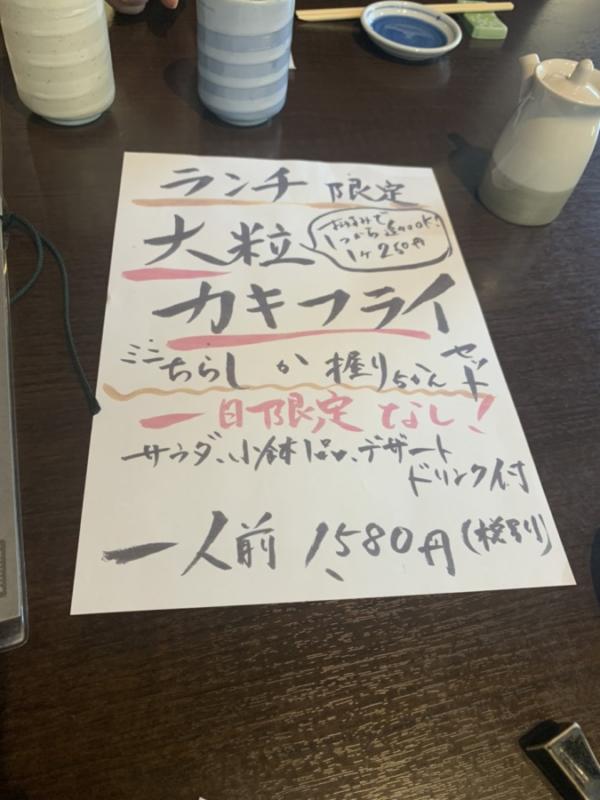 ランチ 限定
大粒
お好みで
1つから追加OK!
1ヶ250円
カキフライ
ミニちらし か 握り5かん セット
一日限定 なし!
サラダ、小鉢1品、デザート
ドリンク付
一人前 1,580円(税別)